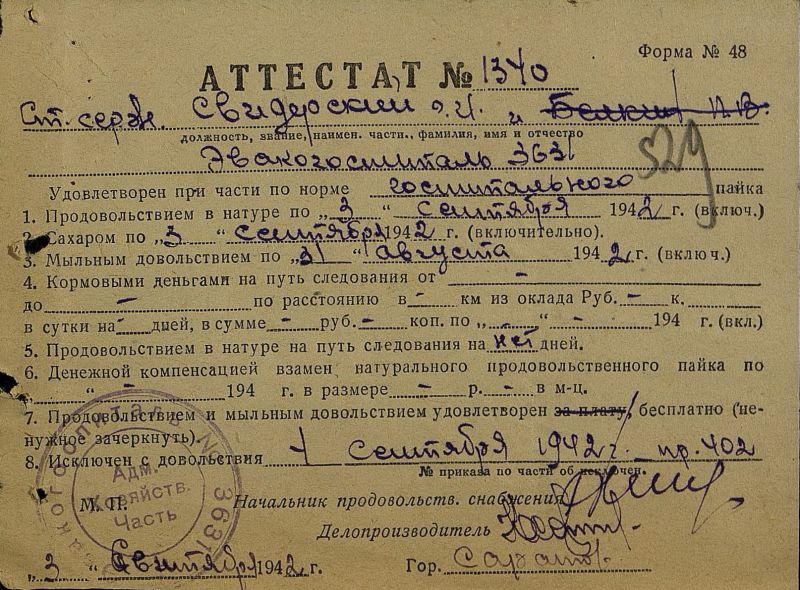 Форма № 48
АТТЕСТАТ № 1340
Ст. серж. Свидерский и Белкин П.В.
должность, звание, наимен. части., фамилия, имя и отчество
Эвакогоспиталь 3631
529
Удовлетворен при части по норме госпитального пайка
1. Продовольствием в натуре по „3“ сентября 1942 г. (включ.)
2. Сахаром по „3“ сентября 1942 г. (включительно).
3. Мыльным довольствием по „31“ августа 1942 г. (включ.)
4. Кормовыми деньгами на путь следования от –
до – по расстоянию в – км из оклада Руб. – к.
в сутки на – дней, в сумме – руб. – коп. по „ – “ – 194 г. (вкл.)
5. Продовольствием в натуре на путь следования на нет дней.
6. Денежной компенсацией взамен натурального продовольственного пайка по
„ “ – 194 г. в размере – р. – в м-ц.
7. Продовольствием и мыльным довольствием удовлетворен за плату, бесплатно (не-
нужное зачеркнуть).
8. Исключен с довольствия 4 сентября 1942 г. пр. 402
№ приказа по части об исключен.
Адм. Хозяйств. Часть
3631
М. П. Начальник продовольств. снабжения
Делопроизводитель
„3“ Сентября 1942 г. Гор. Саратов.